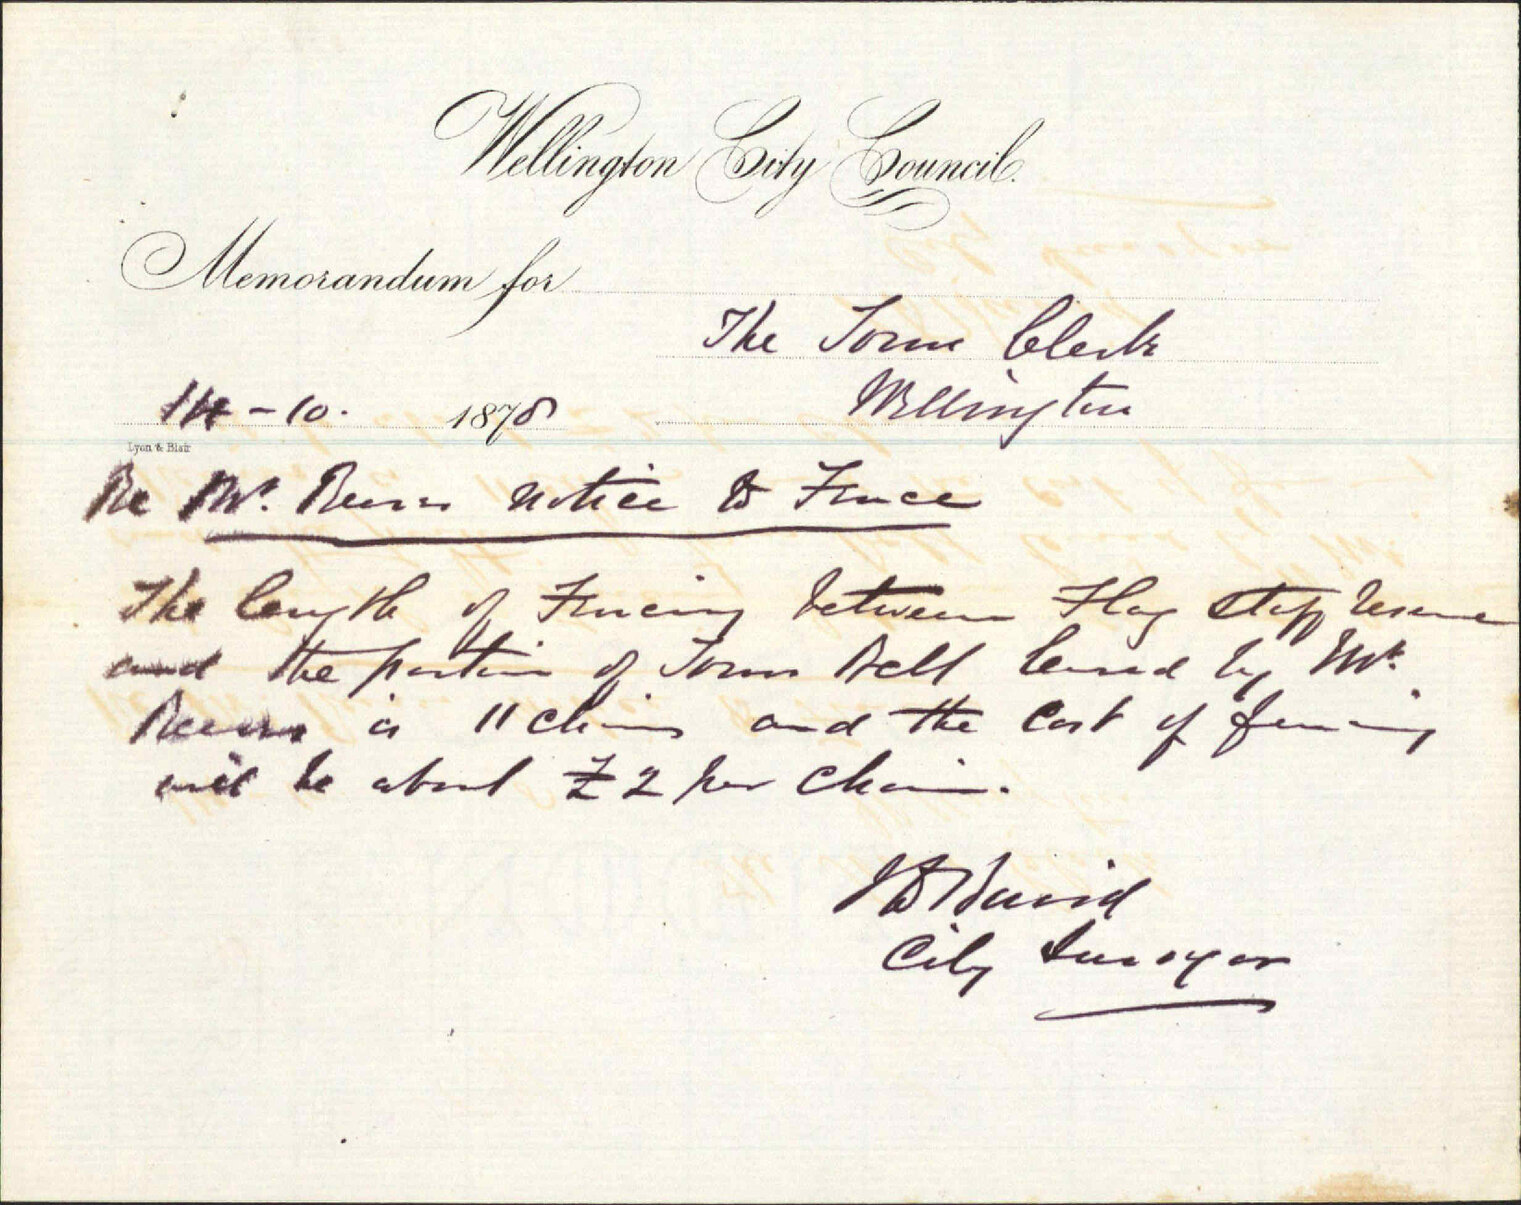 Wellington City Council.
Memorandum for
The Town Clerk
Wellington
14-10. 1878
Lyon & Blair
Re Mr. notice to Fence
The length of Fencing between Flag Staff reserve
and the portion of Town Belt leased by Mr.
is 11 chains and the cost of fencing
will be about £2 per chain.
Baird
City Surveyor